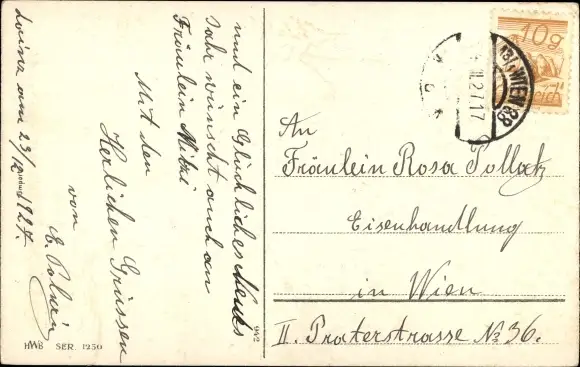 und ein Glückliches Neues
Jahr wünscht auch an
Fräulein Mitzi
Mit den
Herlichen Grüssen
von
E.
Lainz am 23/12 1927.
HWB SER. 1250
942
10g
13/1 WIEN 88
27.17
An
Fräulein Rosa Pollak
Eisenhandlung
in Wien
II. Praterstrasse No 36.